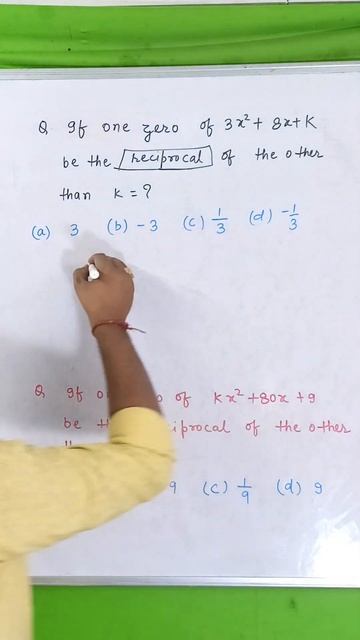 Q If one zero of 3x² + 8x + K
be the reciprocal of the other
than k = ?
(a) 3 (b) -3 (c) 1/3 (d) -1/3
Q If of Kx² + 80x + 9
be of the other
9 (c) 1/9 (d) 9